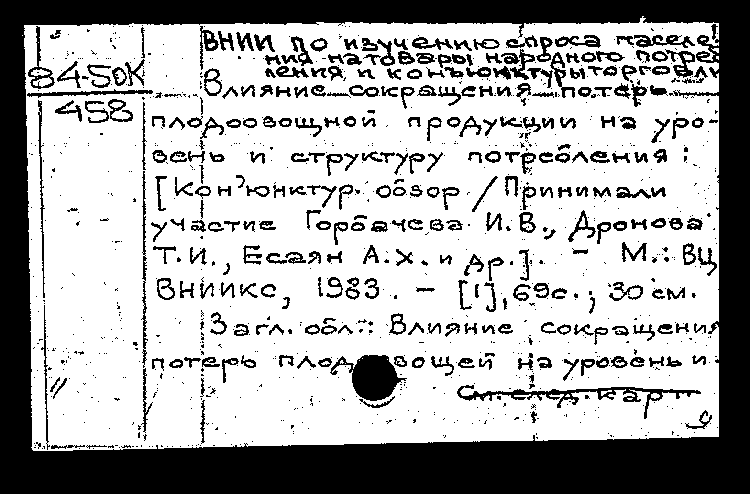 ВНИИ по изучению спроса населе-
ния на товары народного потреб
ления и конъюнктуры торговли
84-50К
Влияние сокращения потерь
458
плодоовощной продукции на уро-
вень и структуру потребления :
[Кон'юнктур. обзор / Принимали
участие Горбачева И.В., Дронова
Т.И., Есаян А.Х. и др.]. - М.: ВЦ
ВНИИКС, 1983. - [1], 69с.; 30 см.
Загл. обл.: Влияние сокращения
потерь плодоовощей на уровень и
См. след. карт